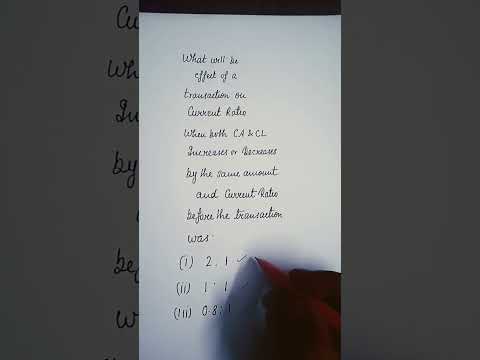 What will be
effect of a
transaction on
Current Ratio
When both CA & CL
Increases or Decreases
by the same amount
and Current Ratio
before the transaction
was:
(i) 2:1 ✓
(ii) 1:1 ✓
(iii) 0.8:1